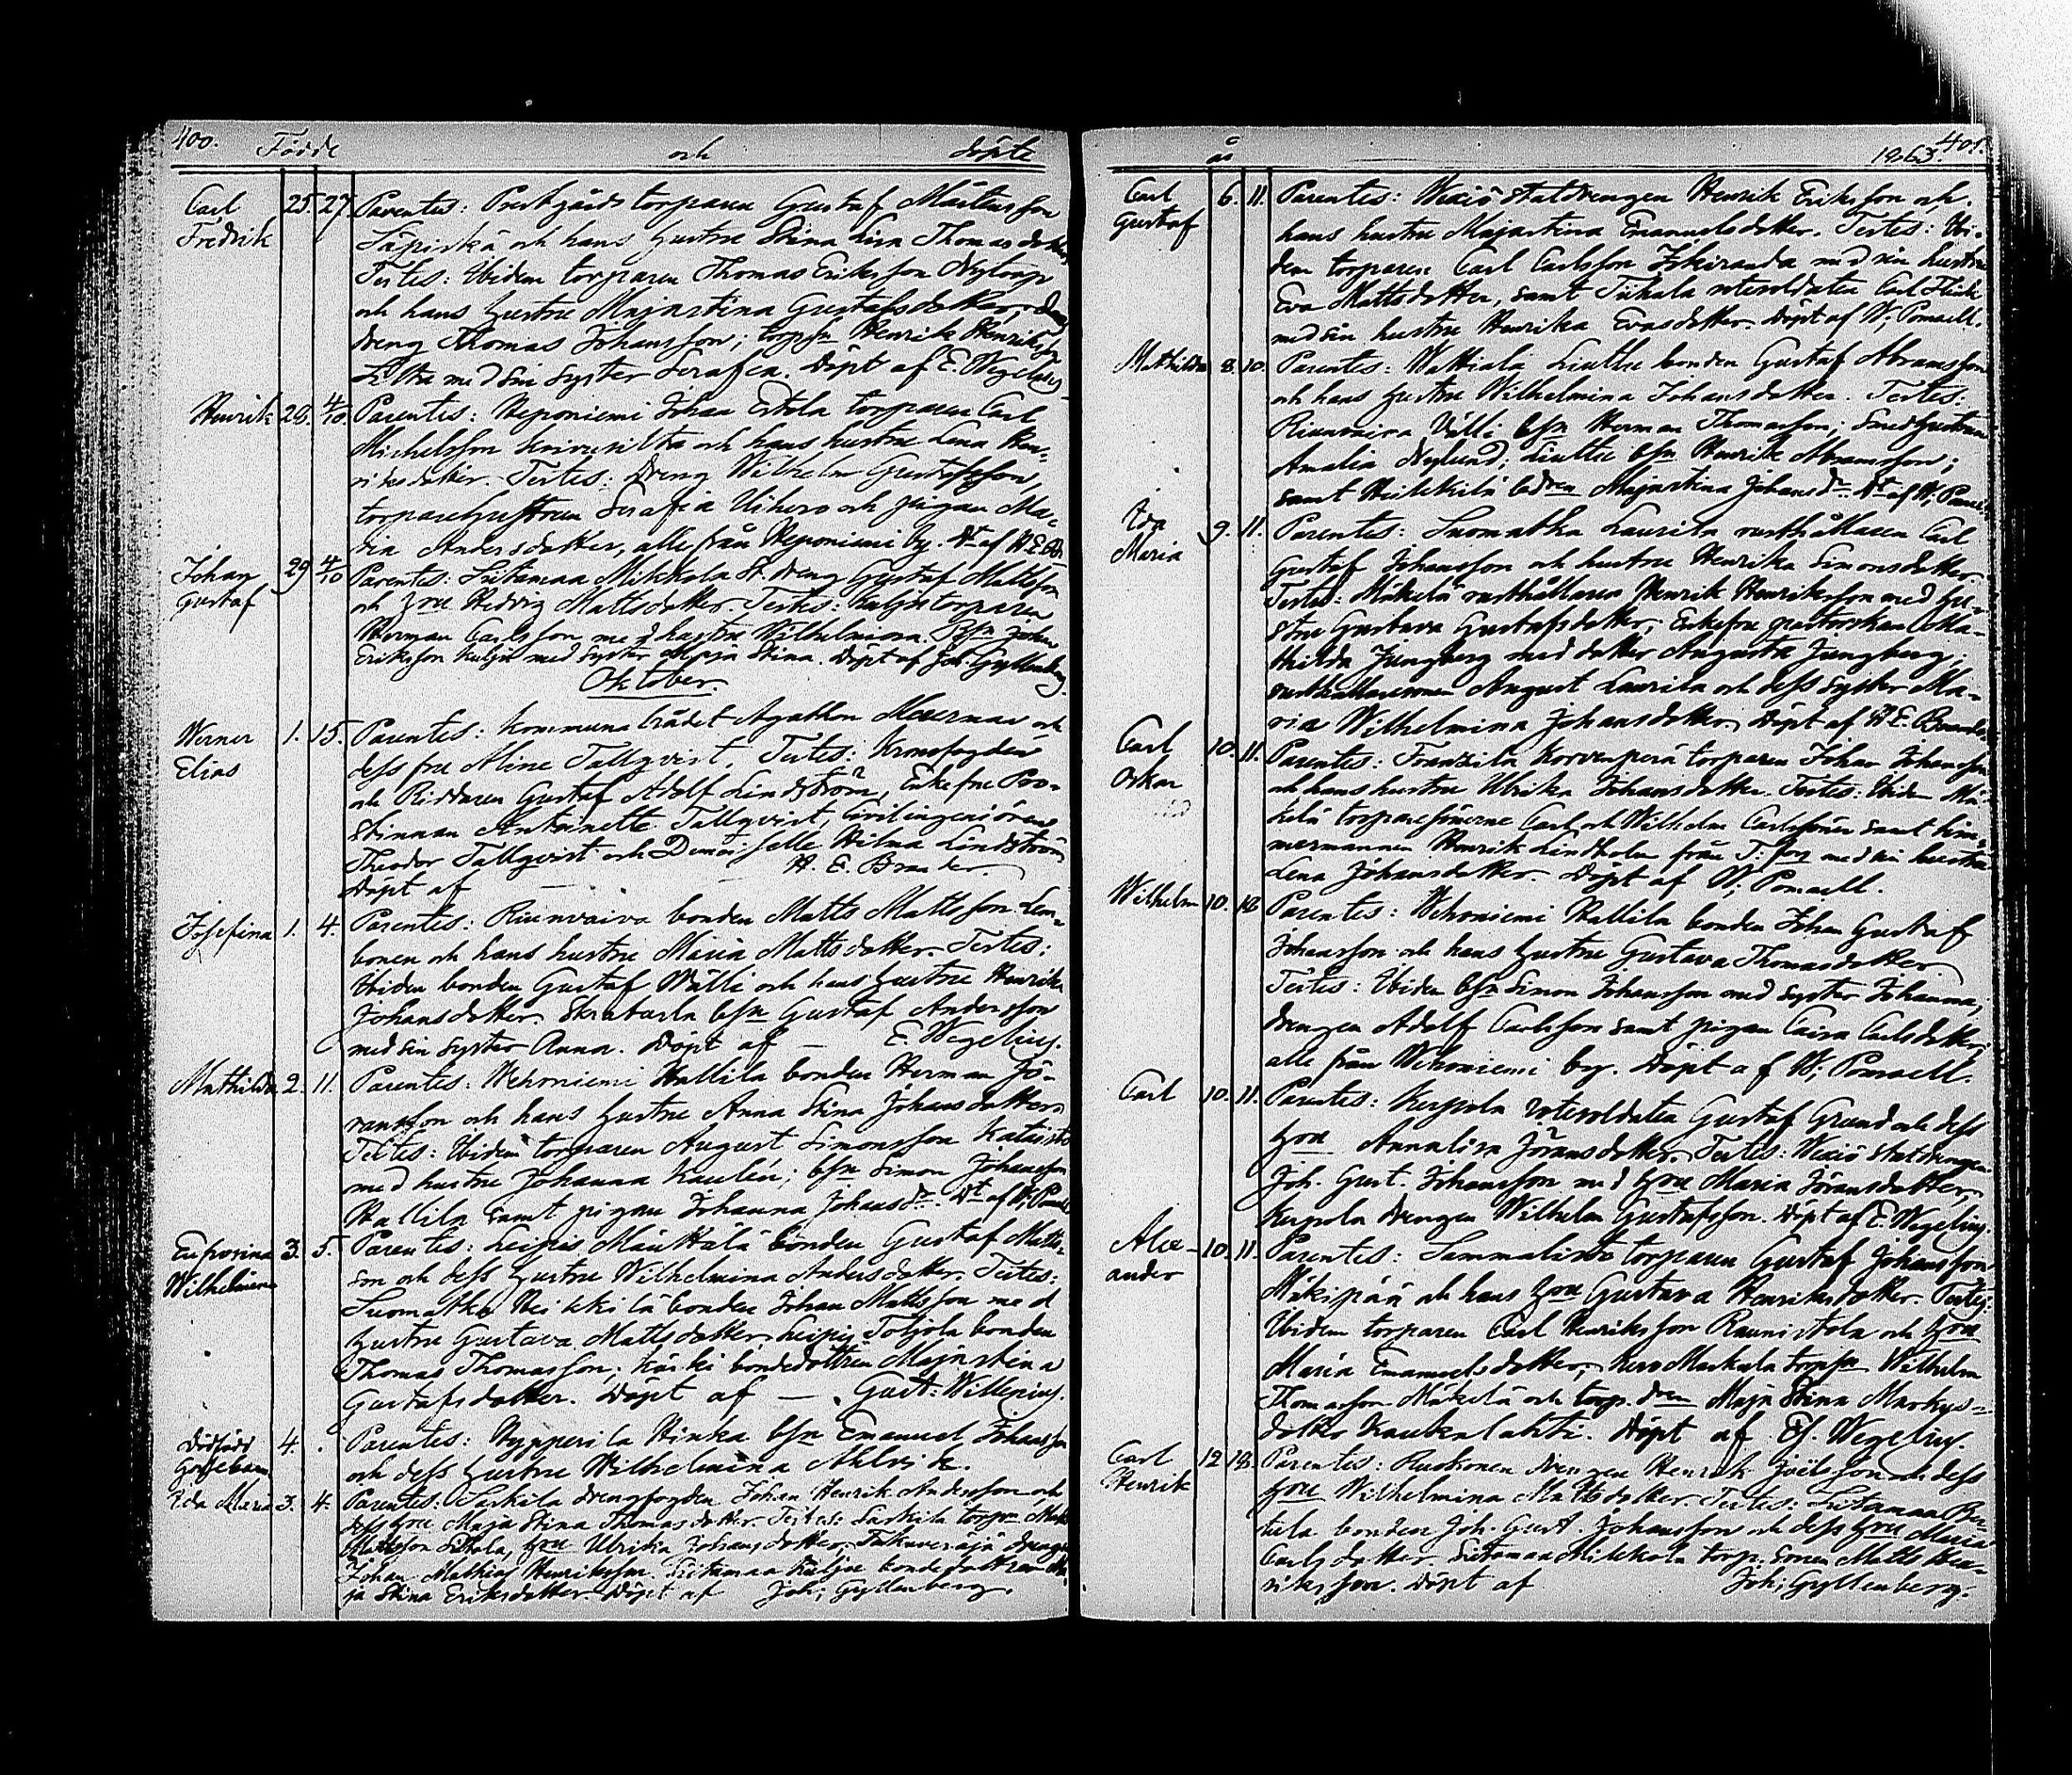 400. Födde och döpte
Carl Fredrik 25. 27. Parentes: Prestgårds torparen Gustaf Mårtensson
och hans hustru Stina Lisa Thomasdotter,
Testes: Ibidem torparen Thomas Eriksson Nytorp
och hans hustru Majastina Gustafsdotter,
dreng Thomas Johansson; torpsn Henrik Henriksson
med sin syster Serafia. Döpt af E. Wegelius
Henrik 29. 4/10. Parentes: Heponiemi Johan Erkola torparen Carl
Michelsson och hans hustru Lena Hen-
riksdotter. Testes: Dreng Wilhelm Gustafsson,
torparehustrun Serafia och pigan Ma-
ria Andersdotter, alle från Heponiemi by. Dt af H. E. Br.
Johan Gustaf 29 4/10 Parentes: Sutamaa Mikkola St. dreng Gustaf Mattsson
och hru Hedvig Mattsdotter. Testes: Kuljus torparen
Herman Carlsson med hustru Wilhelmina. Bsn Johan
Eriksson Kuljus med syster Maja Stina. Döpt af Joh. Gyllenberg.
Oktober.
Werner Elias 1. 15. Parentes: Agathon Meurman och
dess fru Aline Tallqvist. Testes: Kronofogden
och Riddaren Gustaf Adolf Lindström, Enkefru Pro-
stinnan Antoinette Tallqvist, Civilingeniören
Theodor Tallqvist och Demoiselle Hilma Lindström
Döpt af H. E. Brander.
Josefina 1. 4. Parentes: Riunvaiva bonden Matts Mattsson Lem-
bonen och hans hustru Maria Mattsdotter. Testes:
Ibidem bonden Gustaf Wälli och hans hustru Henrika
Johansdotter. bsn Gustaf Andersson
med sin syster Anna. Döpt af — E. Wegelius.
Mathilda 2. 11. Parentes: Wehoniemi Hallila bonden Herman Jö-
ransson och hans hustru Anna Stina Johansdotter
Testes: Ibidem torparen August Simonsson
med hustru Johanna; bsn Simon Johansson
Hallila samt pigan Johanna Johansdr. Dt af W. Ponsell
Eufrosina Wilhelmina 3. 5. Parentes: Leipis Mäuttälä bonden Gustaf Matts-
son och dess hustru Wilhelmina Andersdotter. Testes:
Suomatka Heikkilä bonden Johan Mattsson med
hustru Gustava Mattsdotter, Leipis Tohjola bonden
Thomas Thomasson; Kärki bondedottren Majastina
Gustafsdotter. Döpt af — Gust: Willenius.
Dödfödt gossebarn 4. . Parentes: Hypperila Hinka bsn Emanuel Johansson
och dess hustru Wilhelmina Ahlvik.
Ida Maria 3. 4. Parentes: Sarkila drengfogden Johan Henrik Andersson och
dess hru Maja Stina Thomasdotter. Testes: Sarkila torpn
Mattsson, hru Ulrika Johansdotter, drengen
Johan Mathias Henriksson. Sutamaa Kuljus bondedottren Ma-
ja Stina Eriksdotter. Döpt af Joh; Gyllenberg.
år 1863. 401.
Carl Gustaf 6. 11. Parentes: Wexiö statdrengen Henrik Eriksson och
hans hustru Majastina Emanuelsdotter. Testes: Ibi-
dem torparen Carl Carlsson med sin hustru
Eva Mattsdotter, samt Tiihala rotesoldaten Carl
med sin hustru Henrika Evasdotter. Döpt af W; Ponsell.
Mathilda 8. 10. Parentes: Wattiala Liuttu bonden Gustaf Abramsson
och hans hustru Wilhelmina Johansdotter. Testes:
Riunvaiva Välli bsn Herman Thomasson; Smedhustrun
Amalia Nylund; Liuttu bsn Henrik Abramsson;
samt Heikkilä bdren Majastina Johansdr. Dt af W; Ponsell
Ida Maria 9. 11. Parentes: Suomatka Laurila rusthållaren Carl
Gustaf Johansson och hustru Henrika Simonsdotter
Testes: Mäkelä rusthållaren Henrik Henriksson med hu-
stru Gustava Gustafsdotter; Enkefru pastorskan Ma-
thilda Ljungberg med dotter Augusta Ljungberg,
rusthållaresonen August Laurila och dess syster Ma-
ria Wilhelmina Johansdotter. Döpt af H. E. Brander
Carl Oskar 10. 11. Parentes: Franzila Korvenperä torparen Johan Johansson
och hans hustru Ulrika Johansdotter. Testes: Ibidem Mä-
kelä torparesönerne Carl och Wilhelm Carlssöner samt tim-
mermannen Henrik Lindholm från med sin hustru
Lena Johansdotter. Döpt af W; Ponsell.
Wilhelm 10. 18 Parentes: Wehoniemi Hallila bonden Johan Gustaf
Johansson och hans hustru Gustava Thomasdotter
Testes: Ibidem bsn Simon Johansson med syster Johanna,
drengen Adolf Carlsson samt pigan Caisa Carlsdotter,
alle från Wehoniemi by. Döpt af W; Ponsell.
Carl 10. 11. Parentes: Kerpola rotesoldaten Gustaf Grund och dess
hru Annalisa Jöransdotter. Testes: Wexiö statdrengen
Joh. Gust. Johansson med hru Maria Jöransdotter,
Kerpola drengen Wilhelm Gustafsson. Döpt af E. Wegelius.
Alexander 10. 11. Parentes: Sammalisto torparen Gustaf Johansson
Mäkipää och hans hru Gustava Henriksdotter. Testes:
Ibidem torparen Carl Henriksson Raunistola och hru
Maria Emanuelsdotter; torpsn Wilhelm
Thomasson Mäkelä och torp. dren Maja Stina Markus-
dotter Kaukalahti. Döpt af Ef. Wegelius.
Carl Henrik 12 18. Parentes: Ruokonen drengen Henrik Joëlsson och dess
hru Wilhelmina Mattsdotter. Testes: Sutamaa
bonden Joh. Gust. Johansson och dess hru Maria
Carlsdotter. Sutamaa Mikkola torp. sonen Matts Hen-
riksson. Döpt af Joh; Gyllenberg.